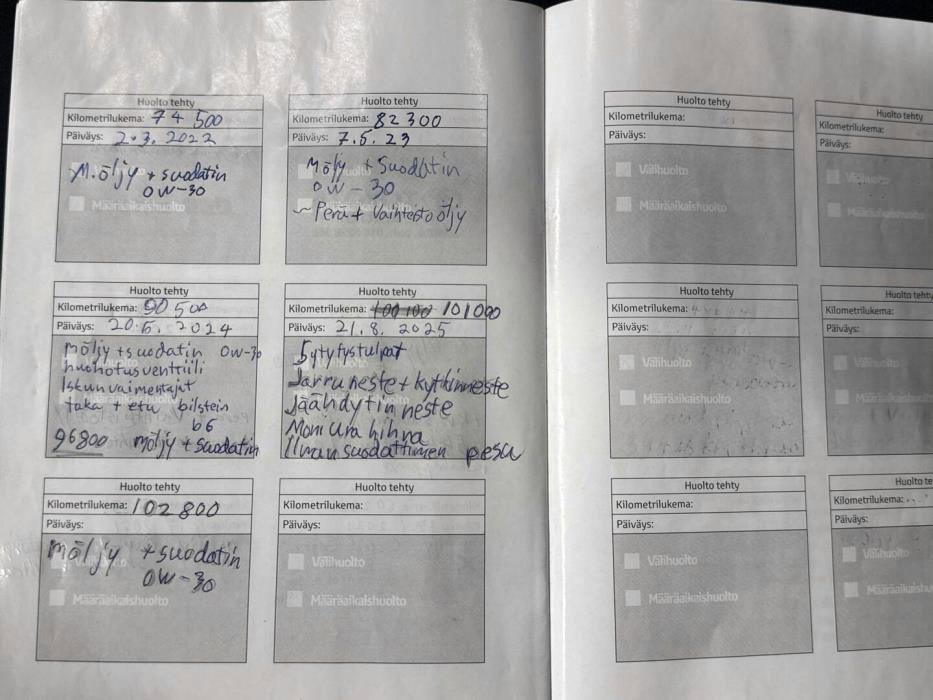 Huolto tehty
Kilometrilukema: 74 500
Päiväys: 2.3.2022
M.öljy + suodatin
0W-30
Määräaikaishuolto
Huolto tehty
Kilometrilukema: 82300
Päiväys: 7.5.23
Möljy + Suodatin
0W-30
Perä + Vaihteisto öljy
Huolto tehty
Kilometrilukema: 90500
Päiväys: 20.5.2024
möljy + suodatin 0W-30
huohotusventtiili
Iskunvaimentajat
taka + etu bilstein
b6
96800 möljy + suodatin
Huolto tehty
Kilometrilukema: 100100 101000
Päiväys: 21.8.2025
Sytytystulpat
Jarruneste + kytkinneste
Jäähdytinneste
Moniurahihna
Ilmansuodattimen pesu
Huolto tehty
Kilometrilukema: 102800
Päiväys:
möljy + suodatin
0W-30
Määräaikaishuolto
Huolto tehty
Kilometrilukema:
Päiväys:
Välihuolto
Määräaikaishuolto
Huolto tehty
Kilometrilukema:
Päiväys:
Välihuolto
Määräaikaishuolto
Huolto tehty
Kilometrilukema:
Päiväys:
Välihuolto
Määräaikaishuolto
Huolto tehty
Kilometrilukema:
Päiväys:
Välihuolto
Määräaikaishuolto
Huolto tehty
Kilometrilukema:
Päiväys:
Välihuolto
Määräaikaishuolto
Huolto tehty
Kilometrilukema:
Päiväys:
Välihuolto
Määräaikaishuolto
Huolto te
Kilometrilukema:
Päiväys:
Välihuolto
Määräaikaishuolto